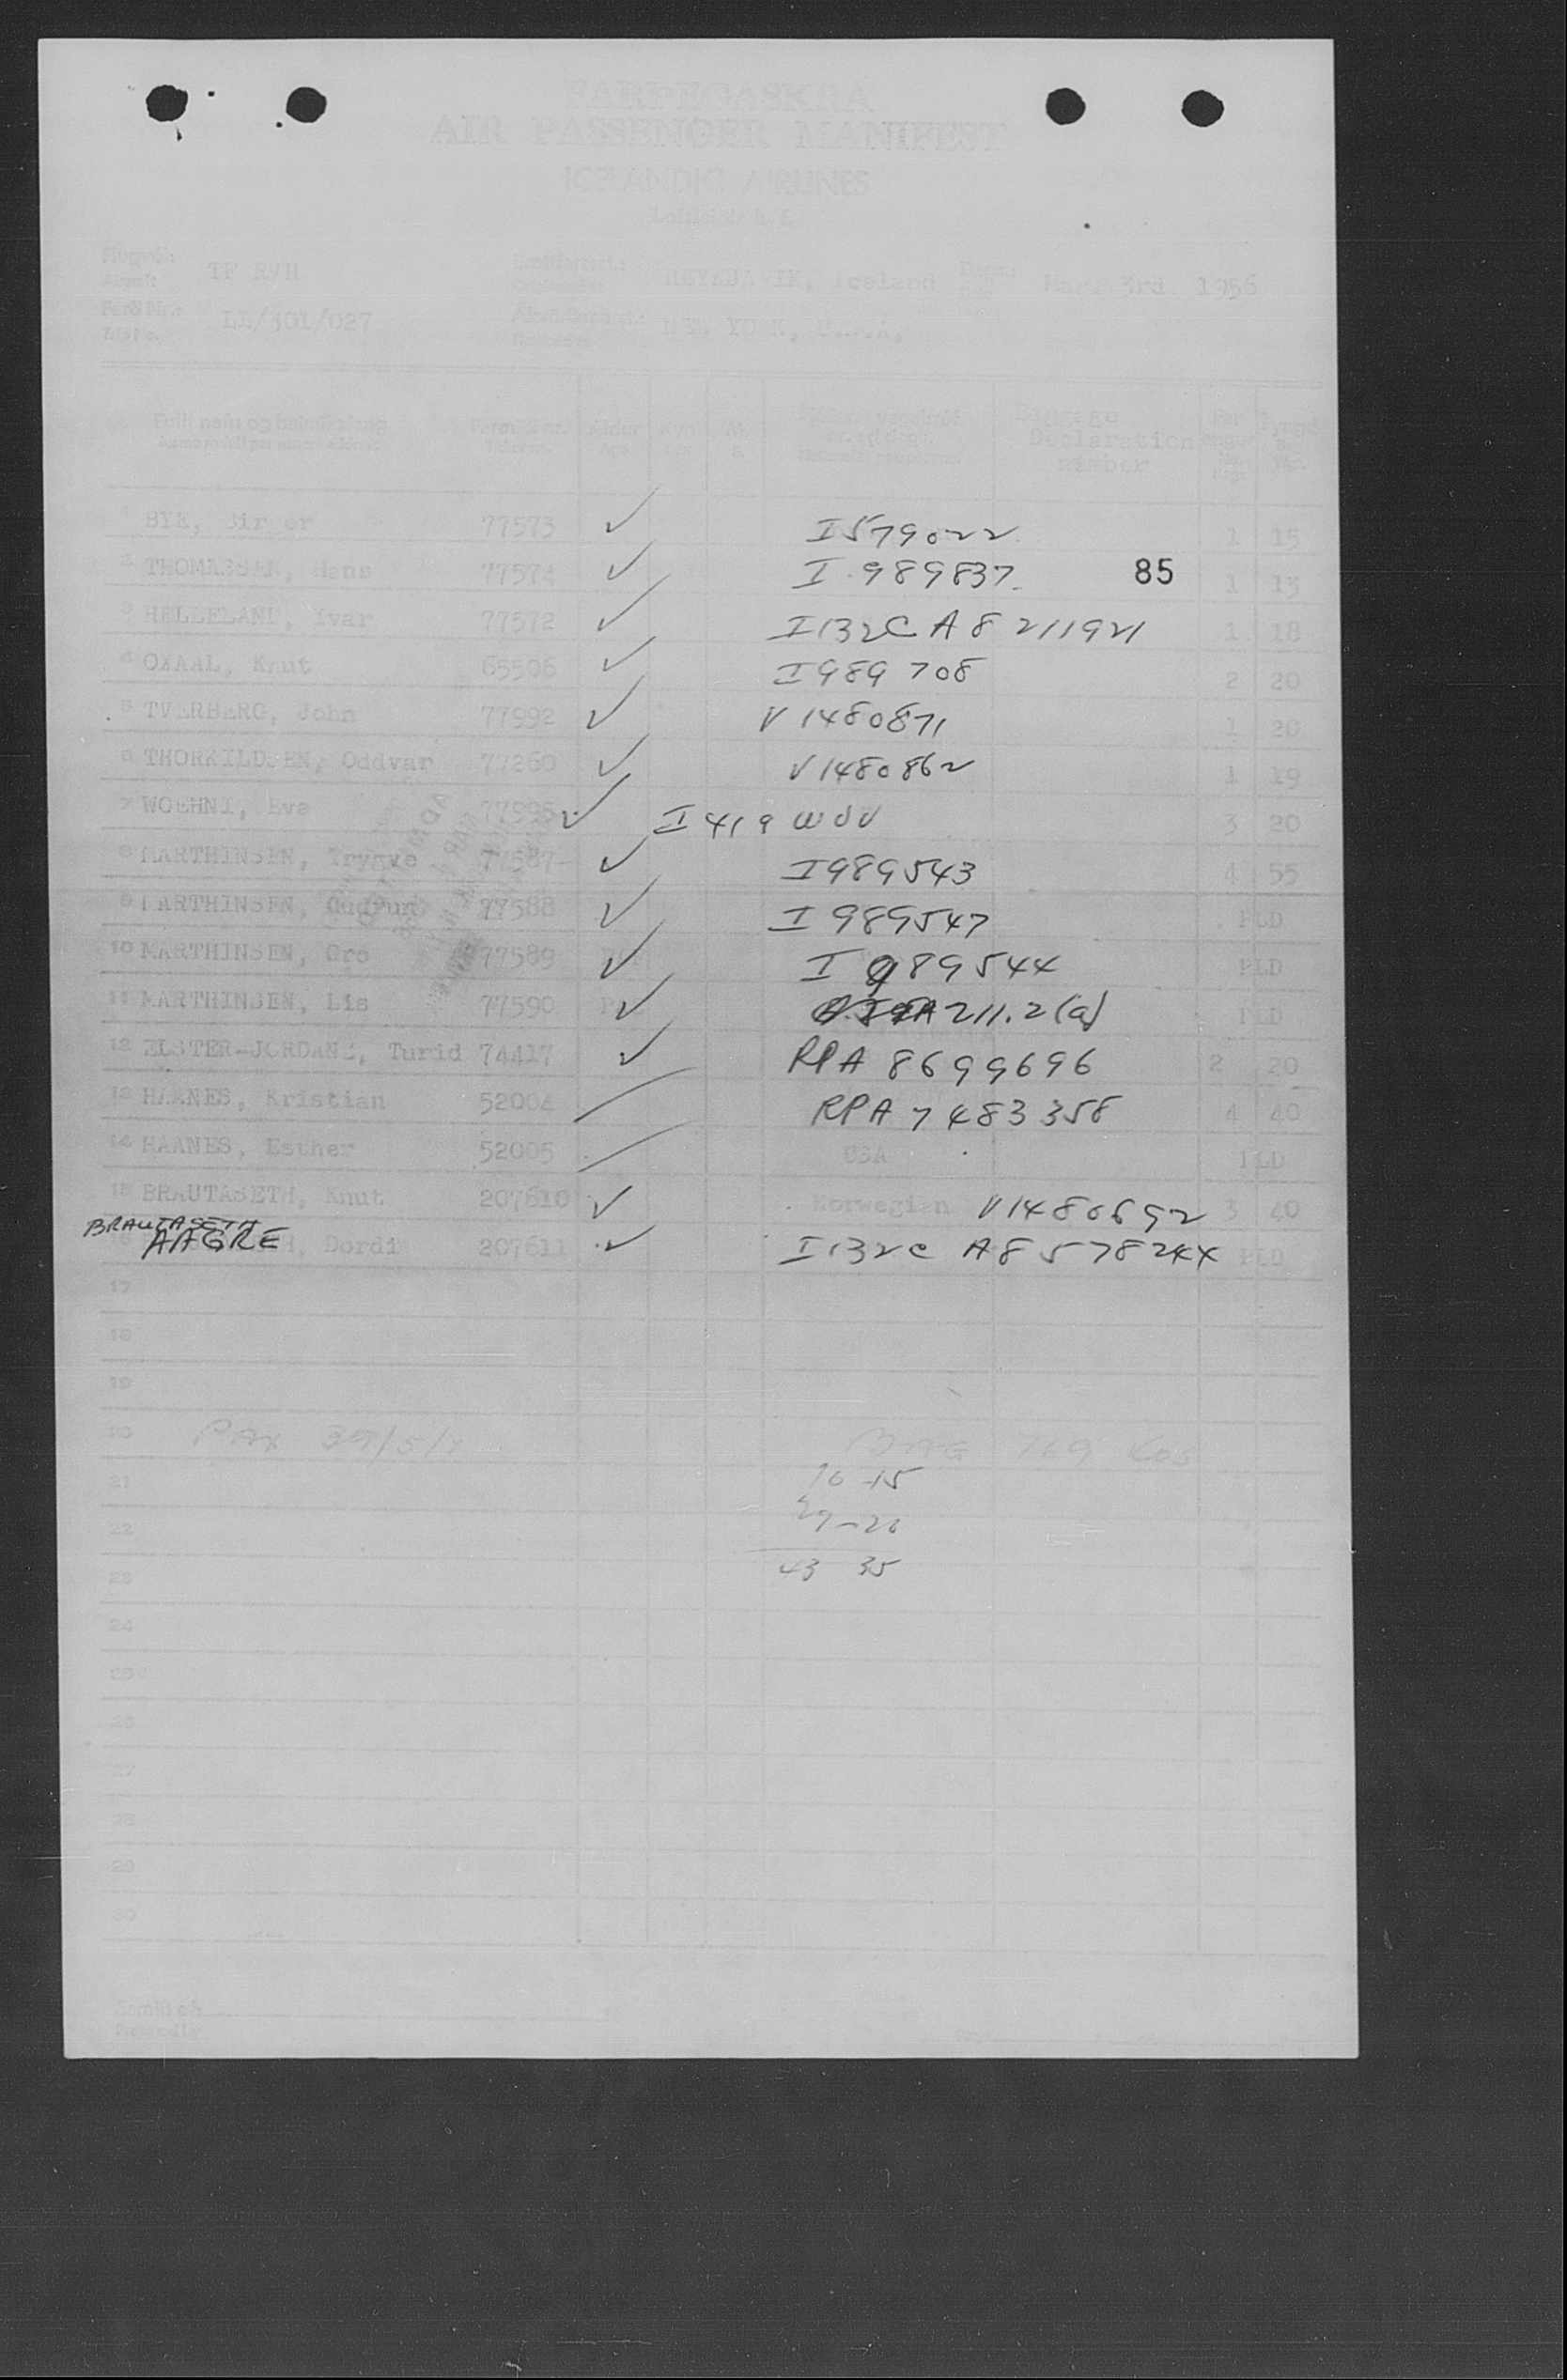 FARÞEGASKRÁ
AIR PASSENGER MANIFEST
ICELANDIC AIRLINES
TF RVH REYKJAVIK, Iceland 3rd 1956
LL/301/027 NEW YORK, U.S.A.
Fullt nafn og heimilisfang
Declaration
number
1 BYE, Birger 77573 ✓ I579022 1 15
2 THOMASSEN, Hans 77574 ✓ I 989837 85 1 13
3 HELLELAND, Ivar 77572 ✓ I132C A8 211921 1 18
4 OXAAL, Knut 65506 ✓ I989 708 2 20
5 TVERBERG, John 77992 ✓ V 1480871 1 20
6 THORKILDSEN, Oddvar 77260 ✓ V1480862 1 19
7 WOEHNI, Eva 77595 ✓ I 419 3 20
8 MARTHINSEN, Trygve 77587 ✓ I989543 4 55
9 MARTHINSEN, Gudrun 77588 ✓ I 989547 PLD
10 MARTHINSEN, Gro 77589 ✓ I 989544 PLD
11 MARTHINSEN, Lis 77590 ✓ 211.2(a) PLD
12 ELSTER-JORDANS, Turid 74417 ✓ RPA 8699696 2 20
13 HAANES, Kristian 52004 RPA 7483358 4 40
14 HAANES, Esther 52005 USA PLD
15 BRAUTASETH, Knut 207610 ✓ Norwegian V1480692 3 40
BRAUTASETH
16 AAGRE Dordi 207611 ✓ I132c A8578244 PLD
17
18
19
20 PAX BAG 769
21 16-15
22 27-20
23 43 35
24
25
26
27
28
29
30